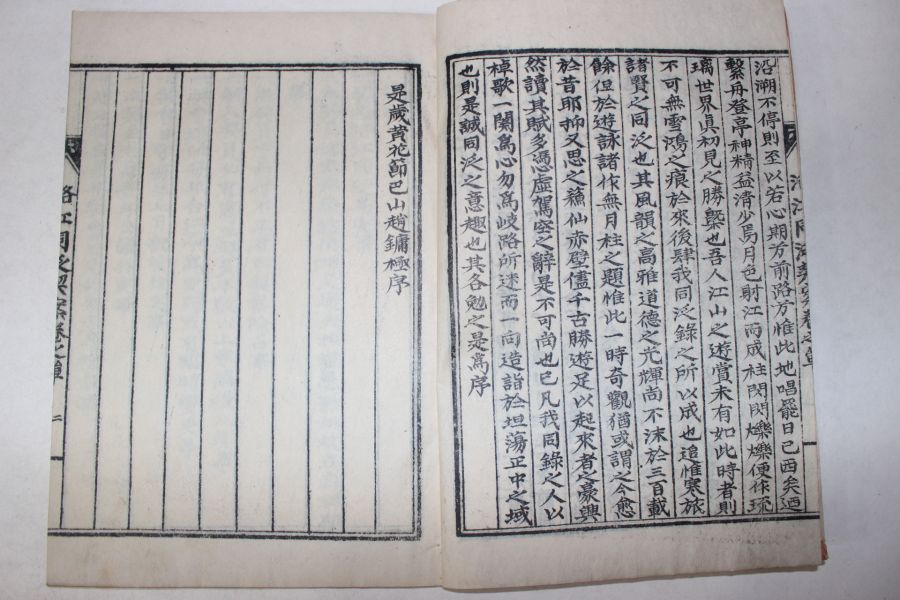 沿溯不停則至以若心期方前路方惟此地唱罷日已西矣迺
繫再登亭神精益清少焉月色射江而成柱閃閃爍爍便作琉
璃世界眞初見之勝槩也吾人江山之遊賞未有如此時者則
不可無雪鴻之痕於來後肆我同泛錄之所以成也追惟寒旅
諸賢之同泛也其風韻之高雅道德之光輝尚不沫於三百載
餘但於遊詠諸作無月柱之題惟此一時奇觀猶或謂之今愈
於昔耶抑又思之蘇仙赤壁儘千古勝遊足以起來者之豪興
然讀其賦多憑虛駕空之辭是不可尚也已凡我同錄之人以
棹歌一闋爲心勿爲岐路所迷而一向造詣於坦蕩正中之域
也則是誠同泛之意趣也其各勉之是爲序
是歲黃花節巴山趙鏞極序
洛江同泛契案卷之單
二